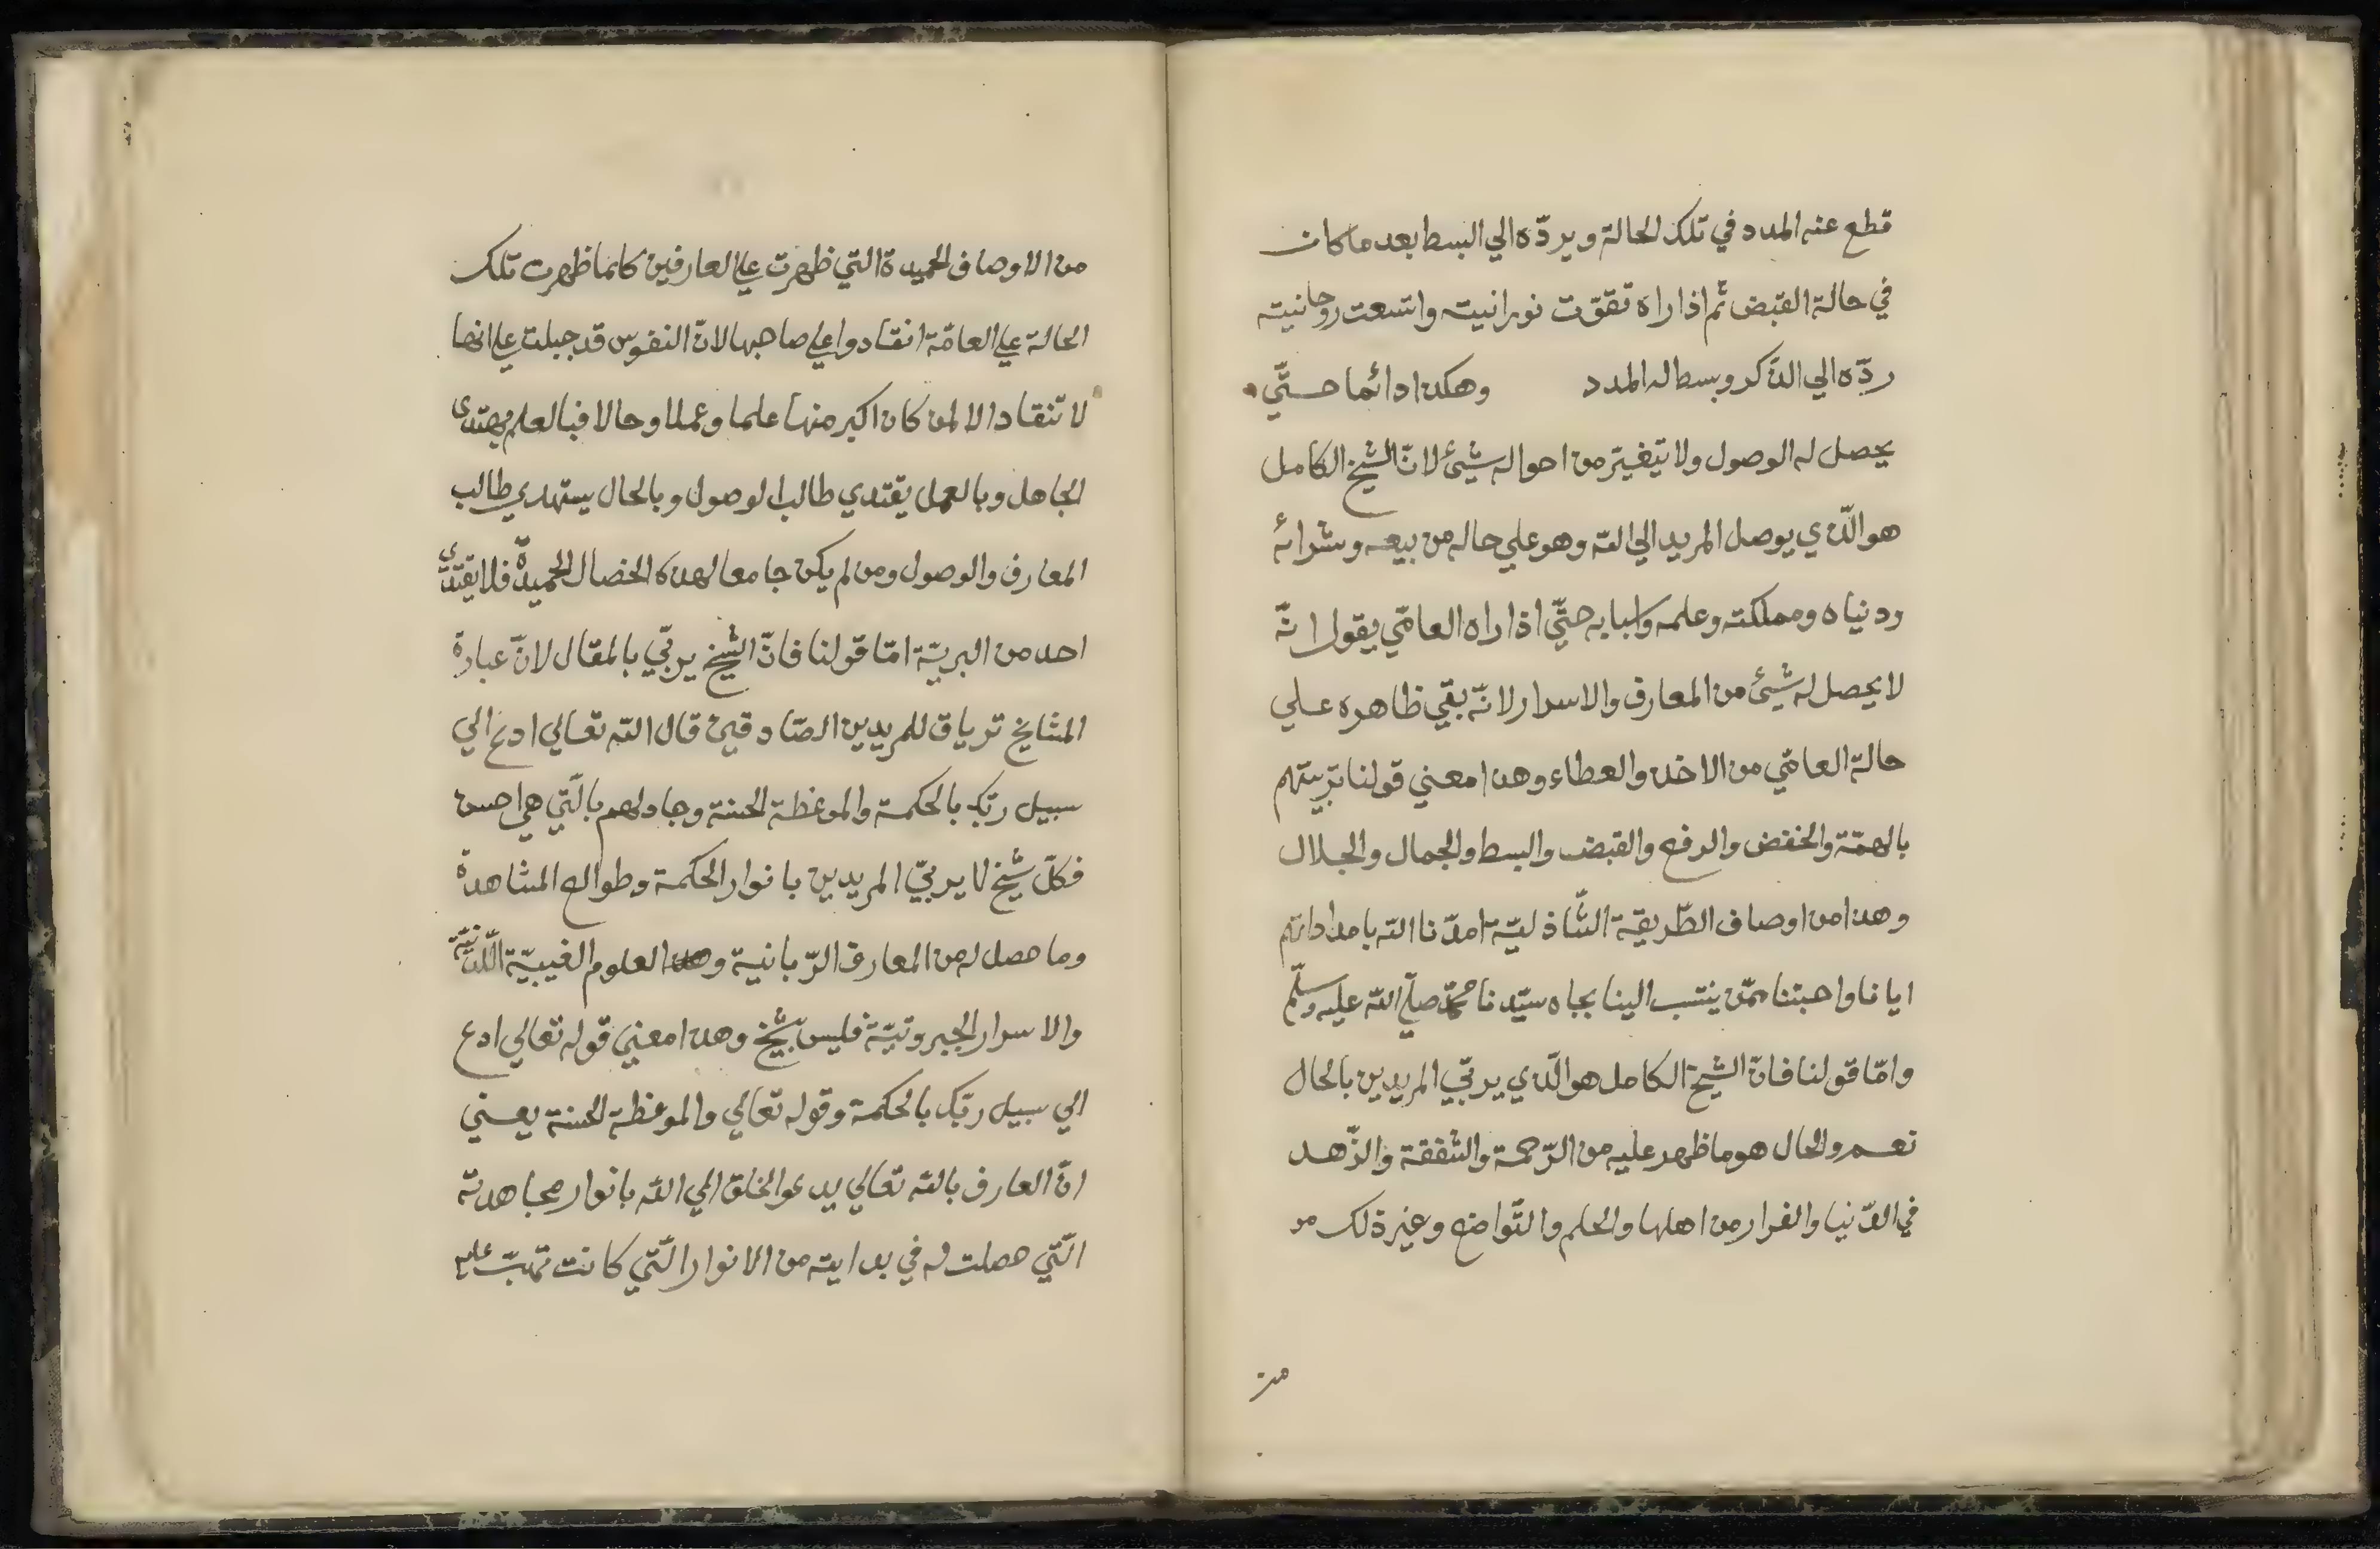 قطع عنه المدد في تلك الحالة ويردّه الي البسط بعد ما كان
في حالة القبض ثم اذا راه تقوّت نورانيته واتسعت روحانيته
ردّه الي الذّكر وبسط له المدد وهكذا دائما حتّي
يحصل له الوصول ولا يتغيّر من احواله شيئ لانّ الشيخ الكامل
هو الّذي يوصل المريد الي الله وهو علي حاله من بيعه وشرائه
ودنياه ومملكته وعلمه واسبابه حتّي اذا راه العامّي يقول انّه
لا يحصل له شيئ من المعارف والاسرار لانّه بقي ظاهره علي
حالة العامّي من الاخذ والعطاء وهذا معني قولنا بتربيتهم
بالهمّة والخفض والرفع والقبض والبسط والجمال والجلال
وهذا من اوصاف الطّريقة الشّاذليّة امدّنا الله بامداداتهم
ايانا واحبتنا ممّن ينتسب الينا بجاه سيّدنا محمّد صلّي الله عليه وسلّم
وامّا قولنا فانّ الشيخ الكامل هو الّذي يربّي المريدين بالحال
نعم والحال هو ما ظهر عليه من الرّحمة والشّفقة والزّهد
في الدّنيا والفرار من اهلها والحلم والتّواضع وغير ذلك
من
من الاوصاف الحميدة التي ظهرت علي العارفين كلما ظهرت تلك
الحالة علي العامّة انقادوا علي صاحبها لانّ النفوس قد جبلت علي انها
لا تنقاد الا لمن كان اكبر منها علما وعملا وحالا فبالعلم يهتدي
الجاهل وبالعمل يقتدي طالب الوصول وبالحال يستهدي طالب
المعارف والوصول ومن لم يكن جامعا لهذه الخصال الحميدة فلا يقتدي
احد من البريّة امّا قولنا فانّ الشيخ يربّي بالمقال لانّ عبارة
المشايخ ترياق للمريدين الصّادقين قال الله تعالي ادع الي
سبيل ربّك بالحكمة والموعظة الحسنة وجادلهم بالّتي هي احسن
فكلّ شيخ لا يربّي المريدين بانوار الحكمة وطوالع المشاهدة
وما حصل له من المعارف الرّبانية والعلوم الغيبيّة اللّدنيّة
والاسرار الجبروتيّة فليس بشيخ وهذا معني قوله تعالي ادع
الي سبيل ربّك بالحكمة وقوله تعالي والموعظة الحسنة يعني
انّ العارف بالله تعالي يدعو الخلق الي الله بانوار مجاهدته
الّتي حصلت له في بدايته من الانوار الّتي كانت تهبّ عليه